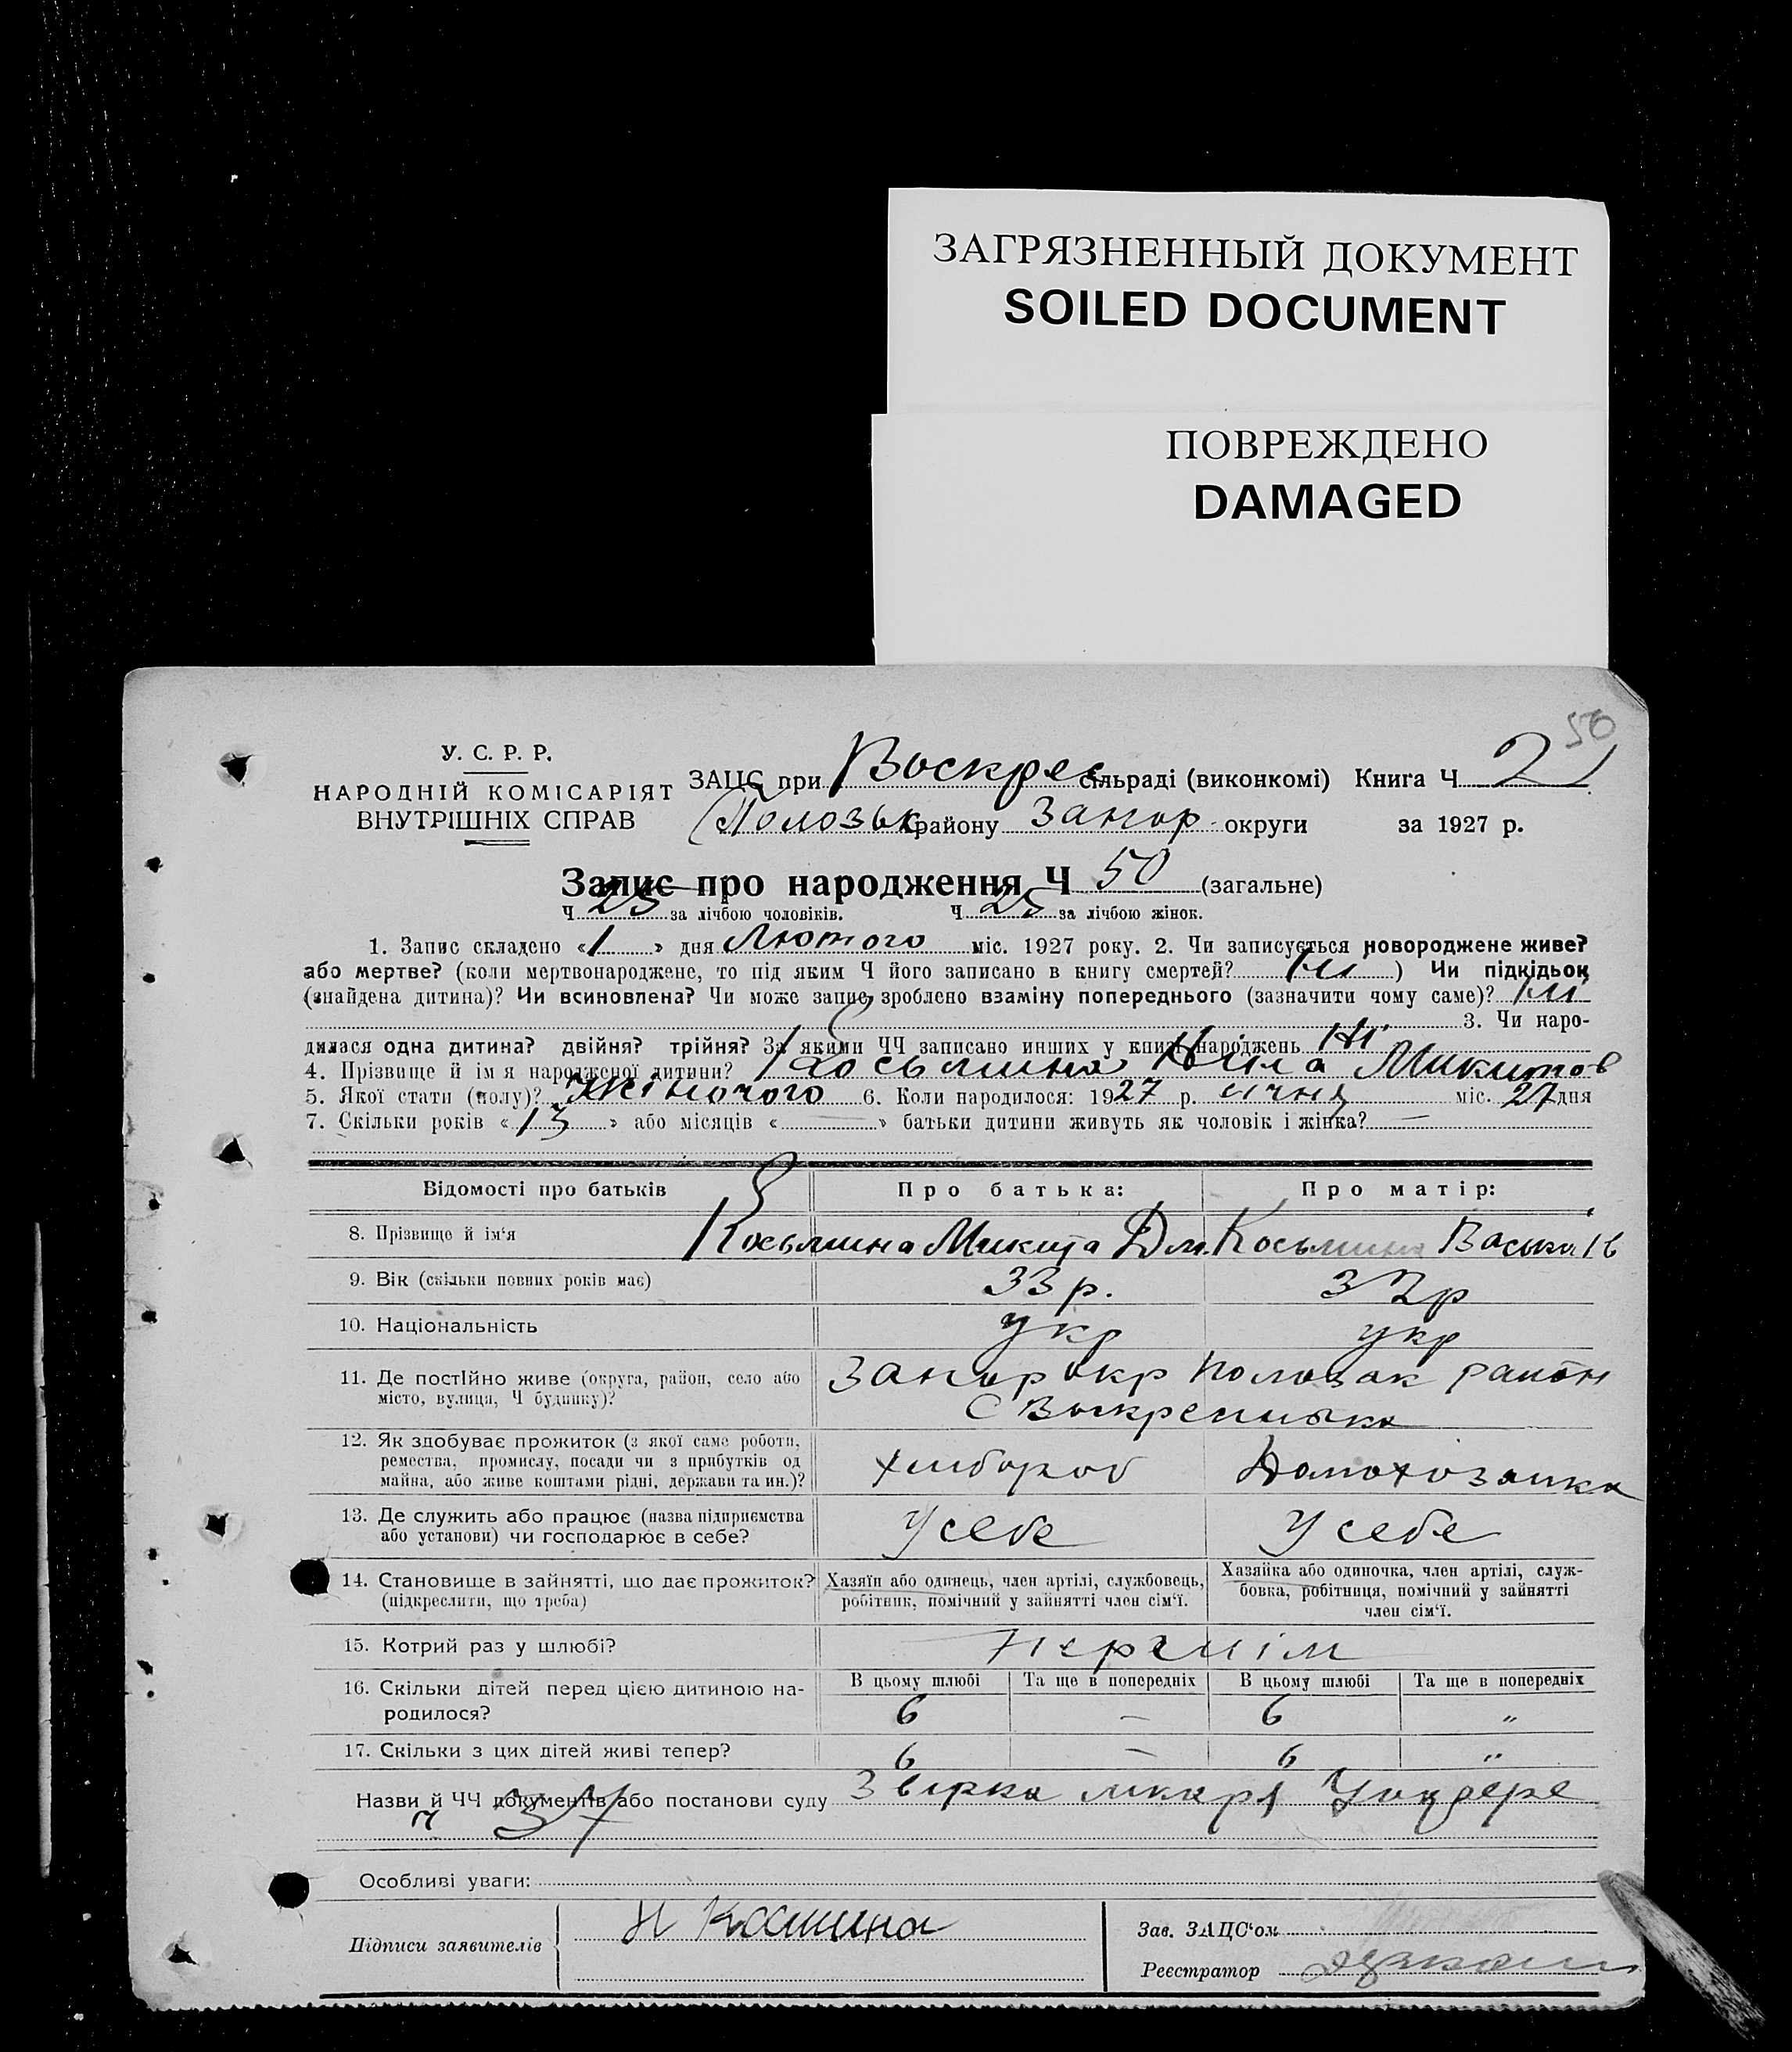 ЗАГРЯЗНЕННЫЙ ДОКУМЕНТ
SOILED DOCUMENT
ПОВРЕЖДЕНО
DAMAGED
50
У. С. Р. Р.
НАРОДНІЙ КОМІСАРІЯТ
ВНУТРІШНІХ СПРАВ
ЗАЦС при Воскрес сільраді (виконкомі) Книга Ч 21
Полозьк району Запор округи за 1927 р.
Запис про народження Ч 50 (загальне)
Ч 25 за лічбою чоловіків. Ч 25 за лічбою жінок.
1. Запис складено «1» дня Лютого міс. 1927 року. 2. Чи записується новороджене живе?
або мертве? (коли мертвонароджене, то під яким Ч його записано в книгу смертей? Ні) Чи підкідьок
(знайдена дитина)? Чи всиновлена? Чи може запис зроблено взаміну попереднього (зазначити чому саме)? Ні
3. Чи наро-
дилася одна дитина? двійня? трійня? За якими ЧЧ записано инших у книзі народжень Ні
4. Прізвище й ім'я народженої дитини? Косьмина Ніла Микитов
5. Якої стати (полу)? жіночого 6. Коли народилося: 1927 р. січня міс. 27 дня
7. Скільки років «13» або місяців «—» батьки дитини живуть як чоловік і жінка? —
Відомості про батьків Про батька: Про матір:
8. Прізвище й ім'я Косьмина Микита Дм. Косьмина
9. Вік (скільки повних років має) 33 р. 32 р
10. Національність укр укр
11. Де постійно живе (округа, район, село або Запор окр Полозьк район
місто, вулиця, Ч будинку)? С Воскресенька
12. Як здобуває прожиток (з якої саме роботи,
ремества, промислу, посади чи з прибутків од хлибороб Домохозяика
майна, або живе коштами рідні, держави та ин.)?
13. Де служить або працює (назва підприємства У себе У себе
або установи) чи господарює в себе?
14. Становище в зайнятті, що дає прожиток? Хазяїн або одинець, член артілі, службовець, Хазяйка або одиночка, член артілі, служ-
(підкреслити, що треба) робітник, помічний у зайнятті член сім'ї. бовка, робітниця, помічний у зайнятті
член сім'ї.
15. Котрий раз у шлюбі? першім
16. Скільки дітей перед цією дитиною на- В цьому шлюбі Та ще в попередніх В цьому шлюбі Та ще в попередніх
родилося? 6 — 6 "
17. Скільки з цих дітей живі тепер? 6 — 6 "
Назви й ЧЧ документів або постанови суду лікаря
37
Особливі уваги:
Підписи заявителів
Зав. ЗАЦС'ом
Реєстратор